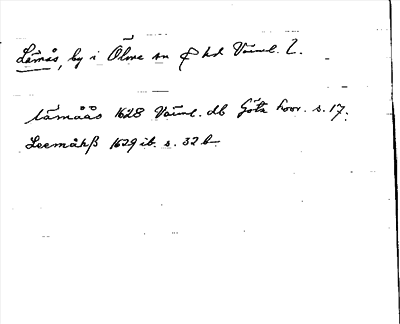 Lämås, by i Ölme sn o hd Värml. L.
Lämåås 1628 Värml. db Göta hovr. s. 17.
Leemåhß 1629 ib. s. 32 b